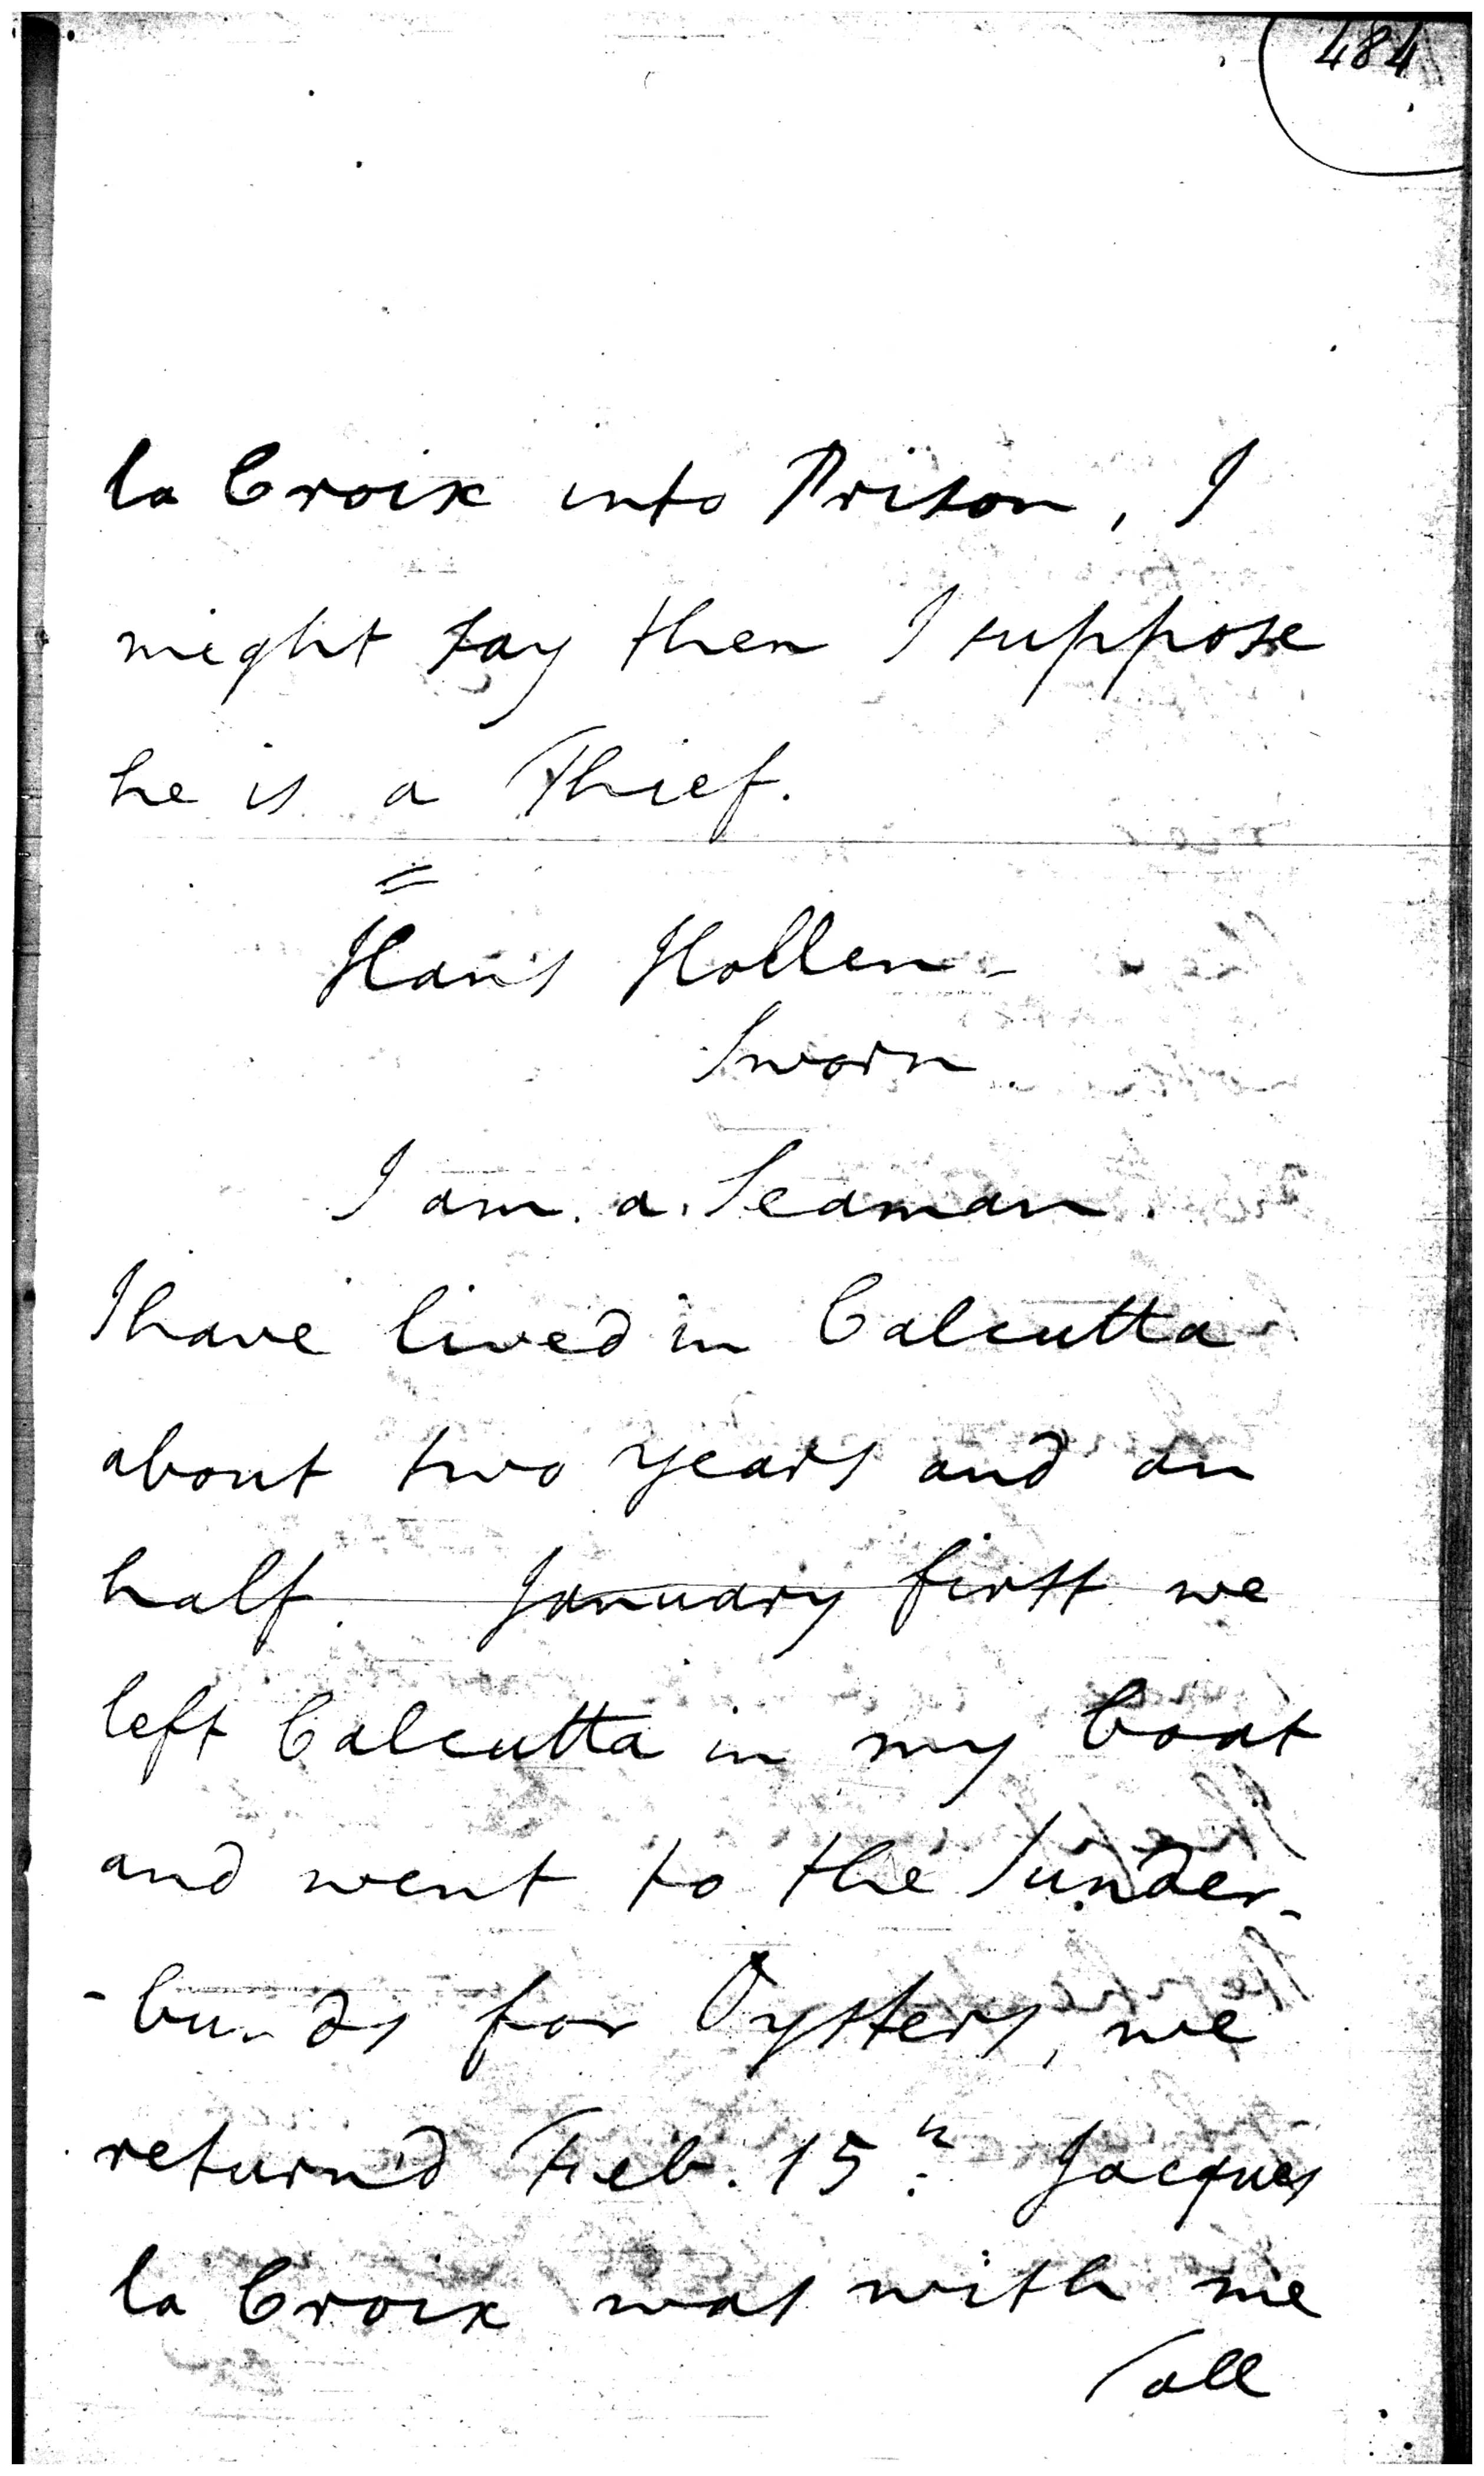 484
la Croix into Prison, I
might say then I suppose
he is a Thief.
Hans Hollen-
Sworn
I am a Seaman.
I have lived in Calcutta
about two years and an
half. January first we
left Calcutta in my boat
and went to the Sunder-
-bunds for Oysters, we
return'd Feb. 15th Jacques
la Croix was with me
all